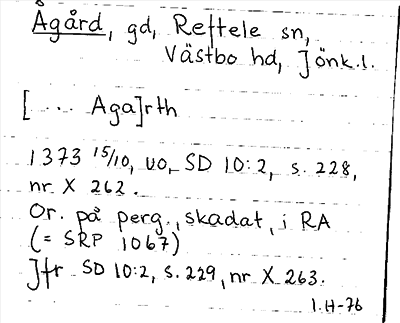 Ågård, gd, Reftele sn,
Västbo hd, Jönk.l.
[ ... Aga]rth
1373 15/10, uo, SD 10:2, s. 228,
nr. X 262.
Or. på perg., skadat, i RA
(= SRP 1067)
Jfr SD 10:2, s. 229, nr X 263.
I.H-76